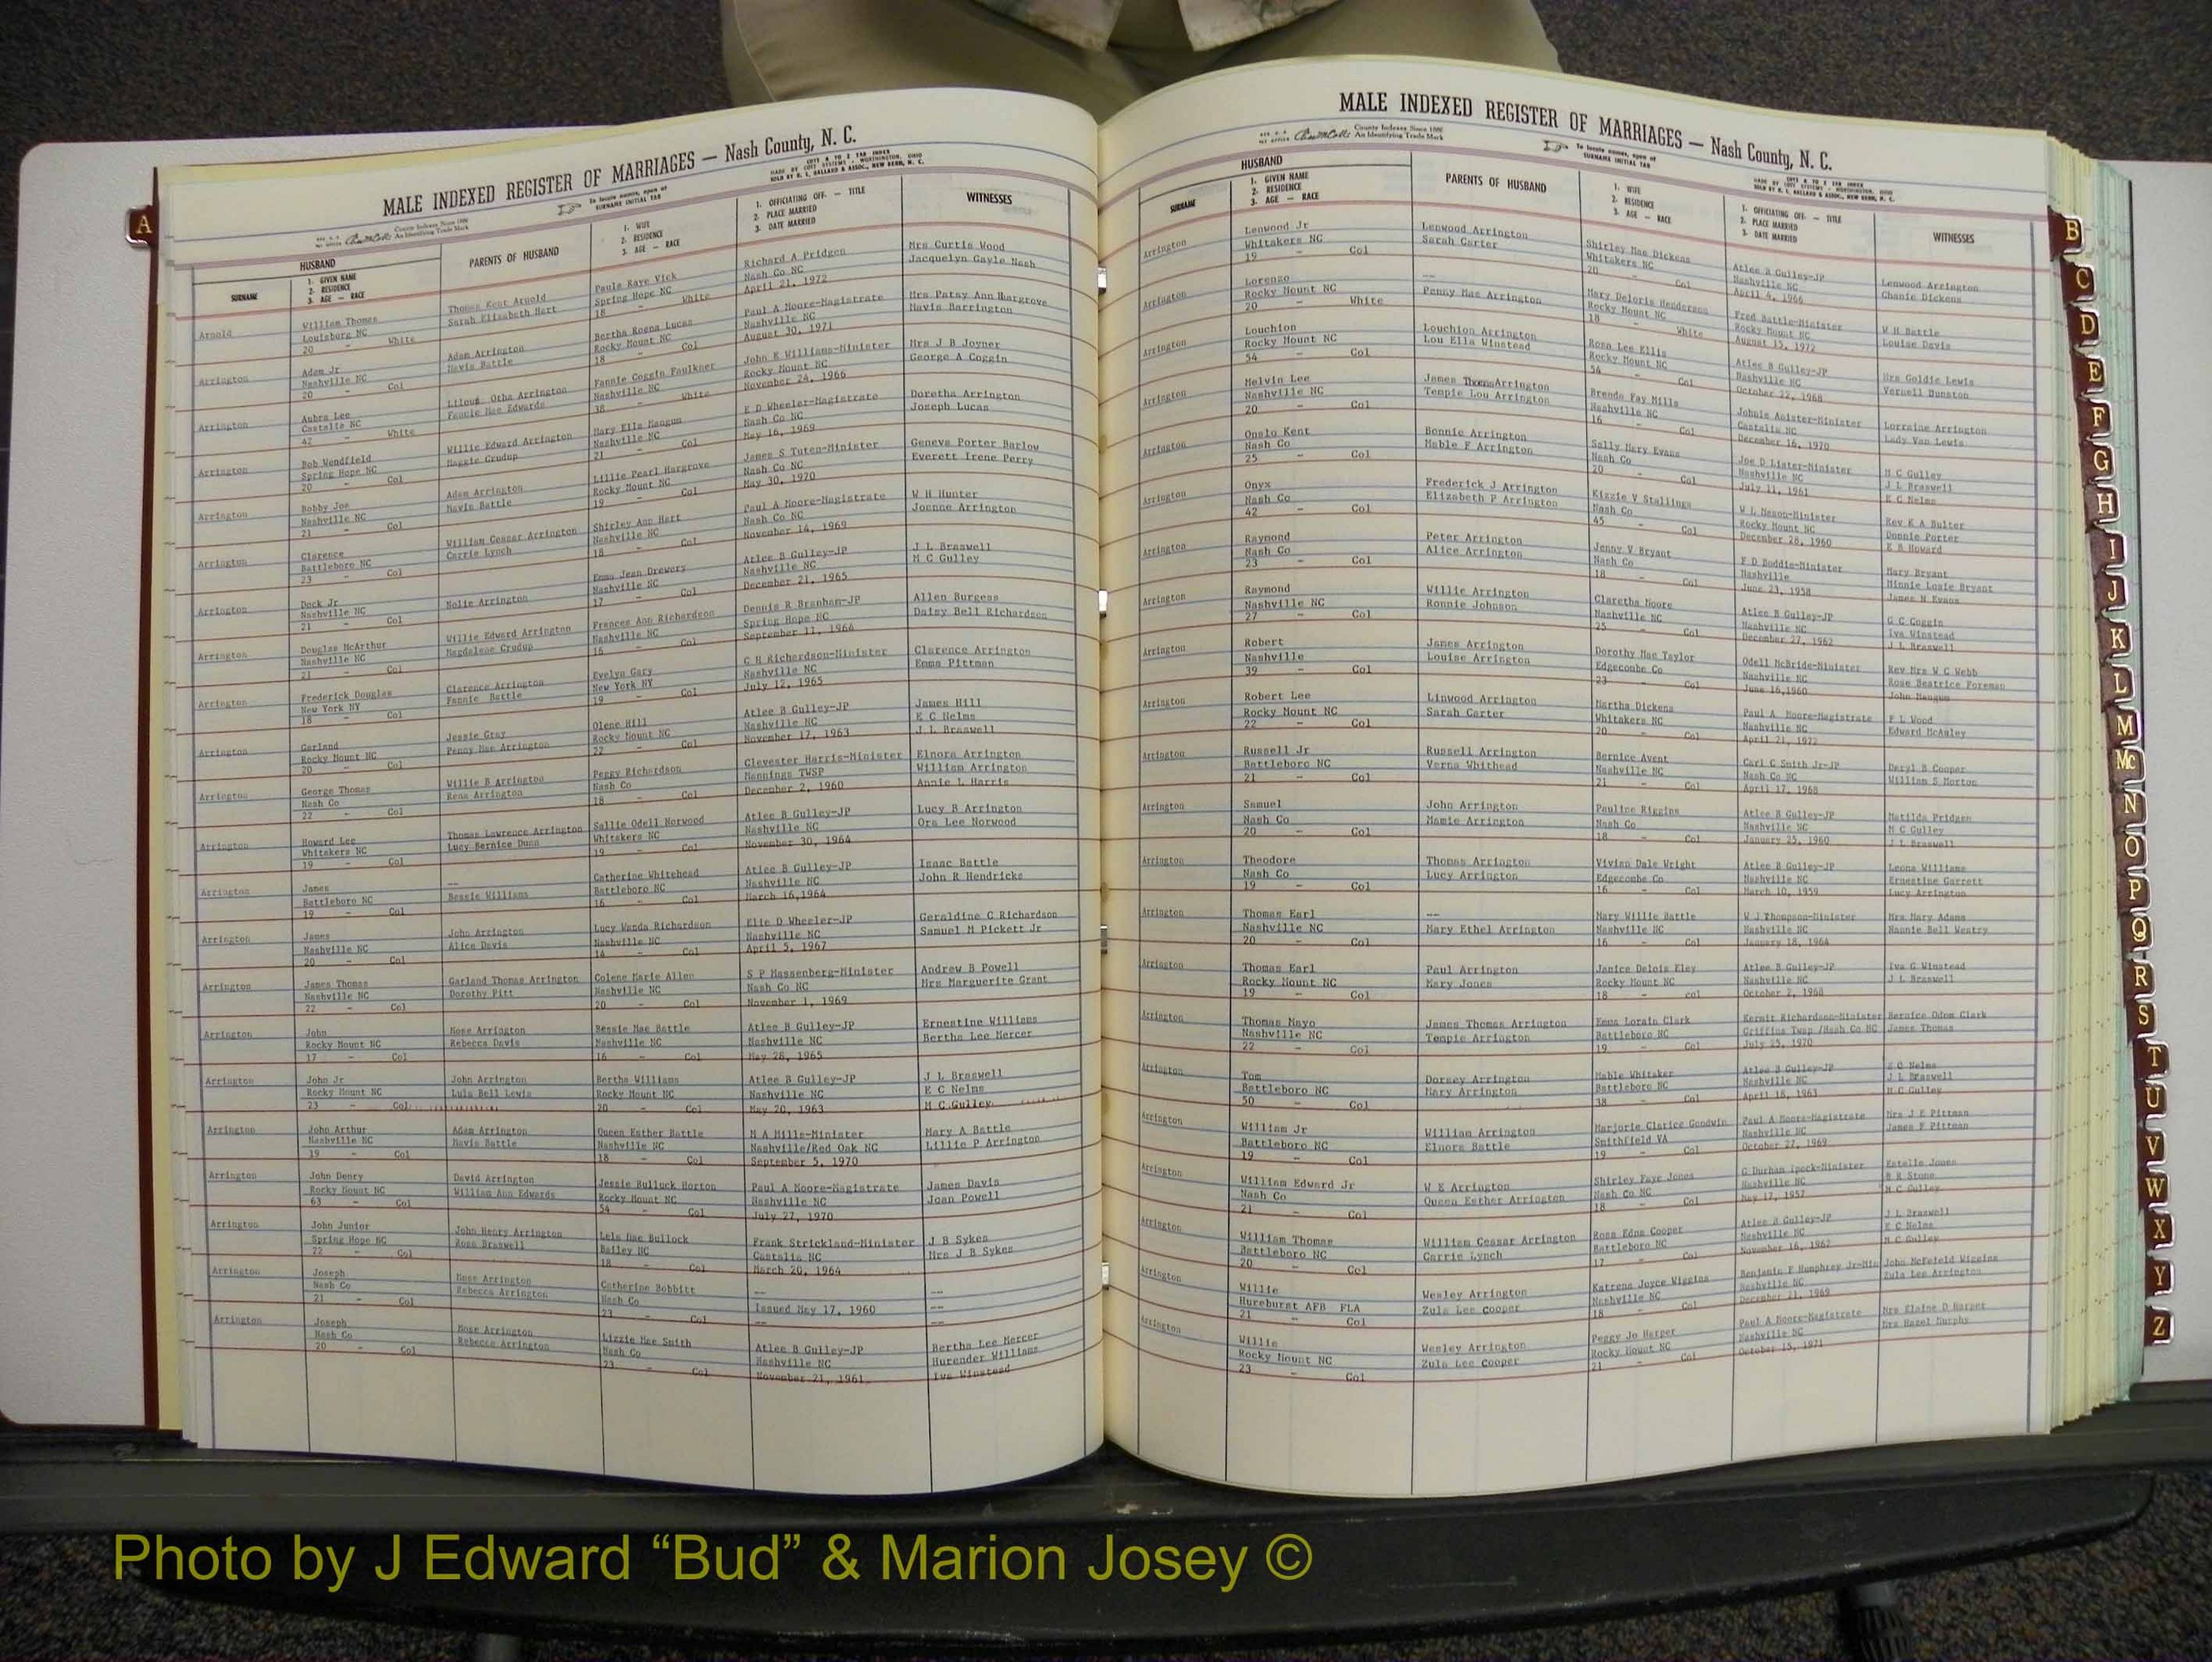 MALE INDEXED REGISTER OF MARRIAGES — Nash County, N. C.
To locate names, open at
SURNAME INITIAL TAB
County Indexes Since 1888
An Identifying Trade Mark
HUSBAND
SURNAME
1. GIVEN NAME
2. RESIDENCE
3. AGE — RACE
PARENTS OF HUSBAND
1. WIFE
2. RESIDENCE
3. AGE — RACE
1. OFFICIATING OFF. - TITLE
2. PLACE MARRIED
3. DATE MARRIED
WITNESSES
Arnold William Thomas Thomas Kent Arnold Paula Kaye Vick Richard A Pridgen Mrs Curtis Wood
Louisburg NC Sarah Elizabeth Hart Spring Hope NC Nash Co NC Jacquelyn Gayle Nash
20 - White 18 - White April 21, 1972
Arrington Adam Jr Adam Arrington Bertha Roena Lucas Paul A Moore-Magistrate Mrs Patsy Ann Hargrove
Nashville NC Mavis Battle Rocky Mount NC Nashville NC Mavis Barrington
20 - Col 18 - Col August 30, 1971
Arrington Aubra Lee Otha Arrington Fannie Coggin Faulkner John E Williams-Minister Mrs J B Joyner
Castalia NC Fannie Mae Edwards Nashville NC Rocky Mount NC George A Coggin
42 - White 38 - White November 24, 1966
Arrington Bob Wendfield Willie Edward Arrington Mary Ella Mangum E D Wheeler-Magistrate Doretha Arrington
Spring Hope NC Maggie Crudup Nashville NC Nash Co NC Joseph Lucas
20 - Col 21 - Col May 16, 1969
Arrington Bobby Joe Adam Arrington Lillie Pearl Hargrove James S Tuten-Minister Geneva Porter Barlow
Nashville NC Mavis Battle Rocky Mount NC Nash Co NC Everett Irene Perry
21 - Col 19 - Col May 30, 1970
Arrington Clarence William Ceasar Arrington Shirley Ann Hart Paul A Moore-Magistrate W H Hunter
Battleboro NC Carrie Lynch Nashville NC Nash Co NC Joanne Arrington
23 - Col 18 - Col November 14, 1969
Arrington Dock Jr Nolie Arrington Emma Jean Drewery Atlee B Gulley-JP J L Braswell
Nashville NC Nashville NC Nashville NC M C Gulley
21 - Col 17 - Col December 21, 1965
Arrington Douglas McArthur Willie Edward Arrington Frances Ann Richardson Dennis R Branham-JP Allen Burgess
Nashville NC Magdelene Crudup Nashville NC Spring Hope NC Daisy Bell Richardson
21 - Col 16 - Col September 11, 1964
Arrington Frederick Douglas Clarence Arrington Evelyn Gary C H Richardson-Minister Clarence Arrington
New York NY Fannie Battle New York NY Nashville NC Emma Pittman
18 - Col 19 - Col July 12, 1965
Arrington Garland Jessie Gray Olene Hill Atlee B Gulley-JP James Hill
Rocky Mount NC Penny Mae Arrington Rocky Mount NC Nashville NC E C Nelms
20 - Col 22 - Col November 17, 1963 J. L Braswell
Arrington George Thomas Willie B Arrington Peggy Richardson Clevester Harris-Minister Elnora Arrington
Nash Co Rena Arrington Nash Co Mannings TWSP William Arrington
22 - Col 18 - Col December 2, 1960 Annie L Harris
Arrington Howard Lee Thomas Lawrence Arrington Sallie Odell Norwood Atlee B Gulley-JP Lucy B Arrington
Whitakers NC Lucy Bernice Dunn Whitakers NC Nashville NC Ora Lee Norwood
19 - Col 19 - Col November 30, 1964
Arrington James -- Catherine Whitehead Atlee B Gulley-JP Isaac Battle
Battleboro NC Bessie Williams Battleboro NC Nashville NC John R Hendricks
19 - Col 16 - Col March 16,1964
Arrington James John Arrington Lucy Wanda Richardson Elie D Wheeler-JP Geraldine C Richardson
Nashville NC Alice Davis Nashville NC Nashville NC Samuel M Pickett Jr
20 - Col 14 - Col April 5, 1967
Arrington James Thomas Garland Thomas Arrington Colene Marie Allen S P Massenberg-Minister Andrew B Powell
Nashville NC Dorothy Pitt Nashville NC Nash Co NC Mrs Marguerite Grant
22 - Col 20 - Col November 1, 1969
Arrington John Mose Arrington Bessie Mae Battle Atlee B Gulley-JP Ernestine Williams
Rocky Mount NC Rebecca Davis Nashville NC Nashville NC Bertha Lee Mercer
17 - Col 16 - Col May 28, 1965
Arrington John Jr John Arrington Bertha Williams Atlee B Gulley-JP J L Braswell
Rocky Mount NC Lula Bell Lewis Rocky Mount NC Nashville NC E C Nelms
23 - Col 20 - Col May 20, 1963 M C Gulley
Arrington John Arthur Adam Arrington Queen Esther Battle M A Mills-Minister Mary A Battle
Nashville NC Mavis Battle Nashville NC Nashville/Red Oak NC Lillie P Arrington
19 - Col 18 - Col September 5, 1970
Arrington John Denry David Arrington Jessie Bullock Horton Paul A Moore-Magistrate James Davis
Rocky Mount NC William Ann Edwards Rocky Mount NC Nashville NC Joan Powell
63 - Col 54 - Col July 27, 1970
Arrington John Junior John Henry Arrington Lela Mae Bullock Frank Strickland-Minister J B Sykes
Spring Hope NC Rosa Braswell Bailey NC Castalia NC Mrs J B Sykes
22 - Col 18 - Col March 20, 1964
Arrington Joseph Mose Arrington Catherine Bobbitt -- --
Nash Co Rebecca Arrington Nash Co Issued May 17, 1960 --
21 - Col 23 - Col -- --
Arrington Joseph Mose Arrington Lizzie Mae Smith Atlee B Gulley-JP Bertha Lee Mercer
Nash Co Rebecca Arrington Nash Co Nashville NC Hurender Williams
20 - Col 23 - Col November 21, 1961 Iva Winstead
MALE INDEXED REGISTER OF MARRIAGES — Nash County, N. C.
County Indexes Since 1888
An Identifying Trade Mark
To locate names, open at
SURNAME INITIAL TAB
HUSBAND
SURNAME
1. GIVEN NAME
2. RESIDENCE
3. AGE — RACE
PARENTS OF HUSBAND
1. WIFE
2. RESIDENCE
3. AGE — RACE
1. OFFICIATING OFF. - TITLE
2. PLACE MARRIED
3. DATE MARRIED
WITNESSES
Arrington Lenwood Jr Lenwood Arrington Shirley Mae Dickens Atlee B Gulley-JP Lenwood Arrington
Whitakers NC Sarah Carter Whitakers NC Nashville NC Chanie Dickens
19 - Col 20 - Col April 4, 1966
Arrington Lorenzo -- Mary Deloris Henderson Fred Battle-Minister W H Battle
Rocky Mount NC Penny Mae Arrington Rocky Mount NC Rocky Mount NC Louise Davis
20 - White 18 - White August 15, 1972
Arrington Louchion Louchion Arrington Rosa Lee Ellis Atlee B Gulley-JP Mrs Goldie Lewis
Rocky Mount NC Lou Ella Winstead Rocky Mount NC Nashville NC Vernell Bunston
54 - Col 54 - Col October 22, 1968
Arrington Melvin Lee James Thomas Arrington Brenda Fay Mills Anister-Minister Lorraine Arrington
Nashville NC Temple Lou Arrington Nashville NC Castalia NC Lady Van Lewis
20 - Col 16 - Col December 16, 1970
Arrington Onslo Kent Bonnie Arrington Sally Mary Evans Joe D Lister-Minister M C Gulley
Nash Co Mable F Arrington Nash Co Nashville NC J L Braswell
25 - Col 20 - Col July 11, 1961 E C Nelms
Arrington Onyx Frederick J Arrington Kizzie V Stallings W L Mason-Minister Rev K A Bulter
Nash Co Elizabeth P Arrington Nash Co Rocky Mount NC Donnie Porter
42 - Col 45 - Col December 28, 1960 E B Howard
Arrington Raymond Peter Arrington Jenny V Bryant F D Boddie-Minister Mary Bryant
Nash Co Alice Arrington Nash Co Nashville Minnie Losie Bryant
23 - Col 18 - Col June 23, 1958 James N Evans
Arrington Raymond Willie Arrington Claretha Moore Atlee B Gulley-JP G C Coggin
Nashville NC Ronnie Johnson Nashville NC Nashville NC Iva Winstead
27 - Col 25 - Col December 27, 1962 J L Braswell
Arrington Robert James Arrington Dorothy Mae Taylor Odell McBride-Minister Rev Mrs W C Webb
Nashville Louise Arrington Edgecombe Co Nashville NC Rose Beatrice Foreman
39 - Col 23 - Col June 16,1960 John Mangum
Arrington Robert Lee Linwood Arrington Martha Dickens Paul A Moore-Magistrate F L Wood
Rocky Mount NC Sarah Carter Whitakers NC Nashville NC Edward McAuley
22 - Col 20 - Col April 21, 1972
Arrington Russell Jr Russell Arrington Bernice Avent Carl C Smith Jr-JP Daryl B Cooper
Battleboro NC Verna Whithead Nashville NC Nash Co NC William S Morton
21 - Col 21 - Col April 17, 1968
Arrington Samuel John Arrington Pauline Riggins Atlee B Gulley-JP Matilda Pridgen
Nash Co Mamie Arrington Nash Co Nashville NC M C Gulley
20 - Col 18 - Col January 25, 1960 J L Braswell
Arrington Theodore Thomas Arrington Vivian Dale Wright Atlee B Gulley-JP Leona Williams
Nash Co Lucy Arrington Edgecombe Co Nashville NC Ernestine Garrett
19 - Col 16 - Col March 10, 1959 Lucy Arrington
Arrington Thomas Earl -- Mary Willie Battle W J Thompson-Minister Mrs Mary Adams
Nashville NC Mary Ethel Arrington Nashville NC Nashville NC Nannie Bell Westry
20 - Col 16 - Col January 18, 1964
Arrington Thomas Earl Paul Arrington Janice Delois Eley Atlee B Gulley-JP Iva G Winstead
Rocky Mount NC Mary Jones Rocky Mount NC Nashville NC J L Braswell
19 - Col 18 - col October 2, 1968
Arrington Thomas Mayo James Thomas Arrington Emma Lorain Clark Kermit Richardson-Minister Bernice Odom Clark
Nashville NC Temple Arrington Battleboro NC Griffins Twsp /Nash Co NC James Thomas
22 - Col 19 - Col July 25, 1970
Arrington Tom Dorsey Arrington Mable Whitaker Atlee B Gulley-JP E C Nelms
Battleboro NC Mary Arrington Battleboro NC Nashville NC J L Braswell
50 - Col 38 - Col April 18, 1963 M C Gulley
Arrington William Jr William Arrington Marjorie Clarice Goodwin Paul A Moore-Magistrate Mrs J E Pittman
Battleboro NC Elnora Battle Smithfield VA Nashville NC James F Pittman
19 - Col 19 - Col October 27, 1969
Arrington William Edward Jr W E Arrington Shirley Faye Jones G Durham Ipock-Minister Estelle Jones
Nash Co Queen Esther Arrington Nash Co NC Nashville NC B R Stone
21 - Col 18 - Col May 17, 1957 M C Gulley
Arrington William Thomas William Ceasar Arrington Rosa Edna Cooper Atlee B Gulley-JP J L Braswell
Battleboro NC Carrie Lynch Battleboro NC Nashville NC E C Nelms
20 - Col 17 - Col November 16, 1962 M C Gulley
Arrington Willie Wesley Arrington Katrena Joyce Wiggins Benjamin F Humphrey Jr-Min John McFeield Wiggins
Hureburst AFB FLA Zula Lee cooper Nashville NC Nashville NC Zula Lee Arrington
21 - Col 18 - Col December 21, 1969
Arrington Willie Wesley Arrington Peggy Jo Harper Paul A Moore-Magistrate Mrs Elaine D Harper
Rocky Mount NC Zula Lee Cooper Rocky Mount NC Nashville NC Mrs Hazel Murphy
23 - Col 21 - Col October 15, 1971
A
B
C
D
E
F
G
H
I
J
K
L
M
Mc
N
O
P
Q
R
S
T
U
V
W
X
Y
Z
Photo by J Edward “Bud” & Marion Josey ©